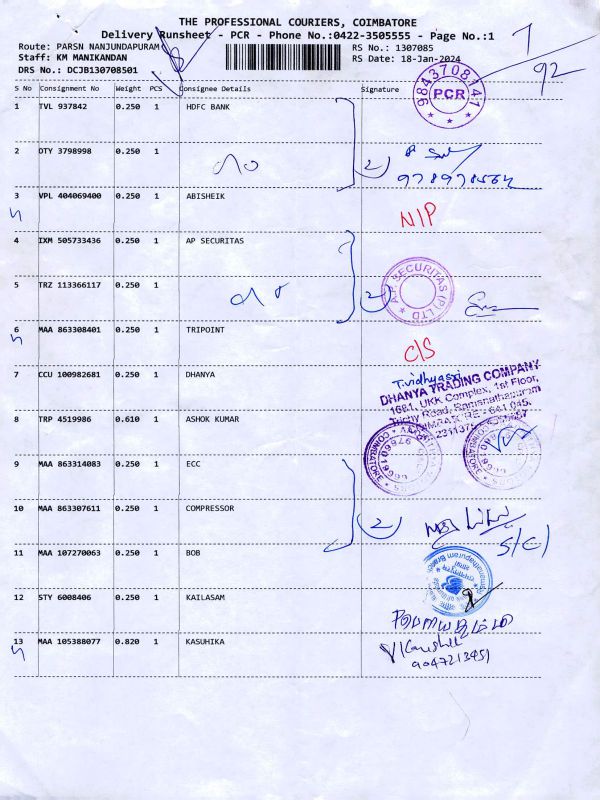 THE PROFESSIONAL COURIERS, COIMBATORE
Delivery Runsheet - PCR - Phone No.:0422-3505555 - Page No.:1
Route: PARSN NANJUNDAPURAM
RS No.: 1307085
Staff: KM MANIKANDAN
RS Date: 18-Jan-2024
DRS No.: DCJB130708501
92
S No Consignment No Weight PCS Consignee Details Signature
9843708141
PCR
1 TVL 937842 0.250 1 HDFC BANK
2 OTY 3798998 0.250 1
2
3 VPL 404069400 0.250 1 ABISHEIK
N/P
4 IXM 505733436 0.250 1 AP SECURITAS
A.P. SECURITAS (P) LTD
5 TRZ 113366117 0.250 1
2
6 MAA 863308401 0.250 1 TRIPOINT
C/S
7 CCU 100982681 0.250 1 DHANYA
T.vidhyasri
DHANYA TRADING COMPANY
1681, UKK Complex, 1st Floor,
Trichy Road, Ramanathapuram
8 TRP 4519986 0.610 1 ASHOK KUMAR
9 MAA 863314083 0.250 1 ECC
10 MAA 863307611 0.250 1 COMPRESSOR
2
S/C)
11 MAA 107270063 0.250 1 BOB
12 STY 6008406 0.250 1 KAILASAM
13 MAA 105388077 0.820 1 KASUHIKA
9047213451